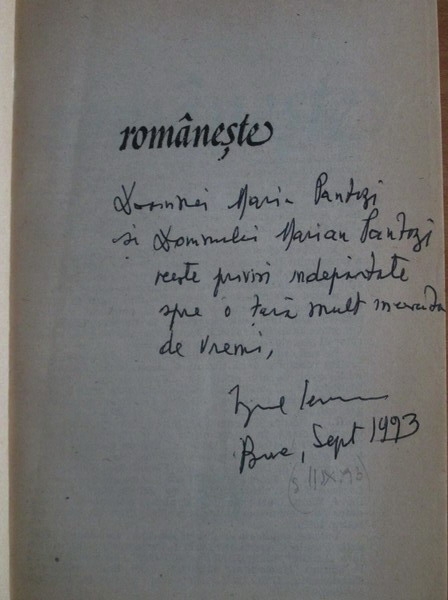 românește
Doamnei Maria Pantazi
și Domnului Marian Pantazi
aceste priviri îndepărtate
spre o țară mult încercată
de vremi,
Virgil Ierunca
Buc, Sept 1993